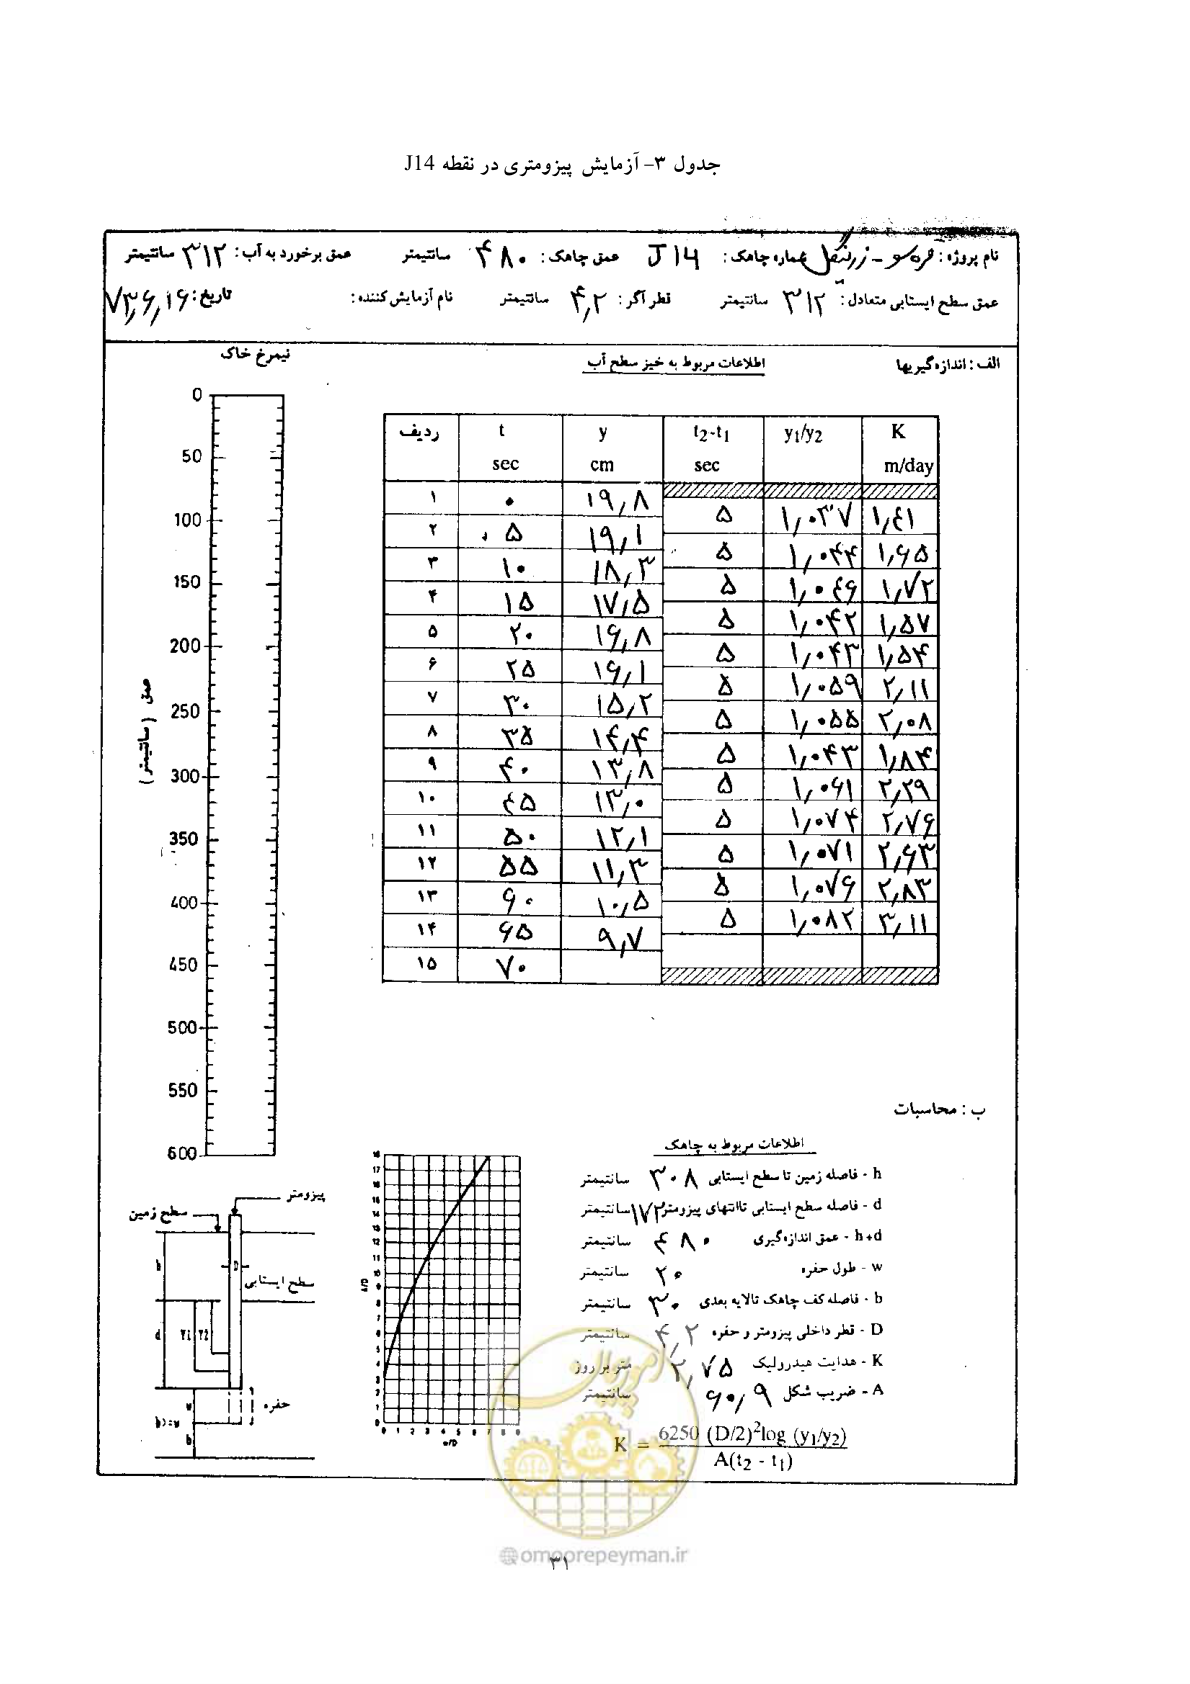 جدول ۳- آزمایش پیزومتری در نقطه J14
نام پروژه : قره سو - زرینگل شماره چاهک : J14 عمق چاهک : ۴۸۰ سانتیمتر عمق برخورد به آب : ۳۱۲ سانتیمتر
عمق سطح ایستابی متعادل : ۳۱۲ سانتیمتر قطر آگر : ۴,۲ سانتیمتر نام آزمایش کننده : تاریخ : ۷۳,۶,۱۶
الف : اندازه‌گیریها
اطلاعات مربوط به خیز سطح آب
نیمرخ خاک
ردیف t sec y cm t2-t1 sec y1/y2 K m/day
۱ ۰ ۱۹,۸
۵ ۱,۰۳۷ ۱,۴۱
۲ ۵ ۱۹,۱
۵ ۱,۰۴۴ ۱,۶۵
۳ ۱۰ ۱۸,۳
۵ ۱,۰۴۶ ۱,۷۲
۴ ۱۵ ۱۷,۵
۵ ۱,۰۴۲ ۱,۵۷
۵ ۲۰ ۱۶,۸
۵ ۱,۰۴۳ ۱,۵۴
۶ ۲۵ ۱۶,۱
۵ ۱,۰۵۹ ۲,۱۱
۷ ۳۰ ۱۵,۲
۵ ۱,۰۵۵ ۲,۰۸
۸ ۳۵ ۱۴,۴
۵ ۱,۰۴۳ ۱,۸۴
۹ ۴۰ ۱۳,۸
۵ ۱,۰۶۱ ۲,۲۹
۱۰ ۴۵ ۱۳,۰
۵ ۱,۰۷۴ ۲,۷۶
۱۱ ۵۰ ۱۲,۱
۵ ۱,۰۷۱ ۲,۶۳
۱۲ ۵۵ ۱۱,۳
۵ ۱,۰۷۶ ۲,۸۳
۱۳ ۶۰ ۱۰,۵
۵ ۱,۰۸۲ ۳,۱۱
۱۴ ۶۵ ۹,۷
۱۵ ۷۰
عمق (سانتیمتر)
0
50
100
150
200
250
300
350
400
450
500
550
600
ب : محاسبات
اطلاعات مربوط به چاهک
h - فاصله زمین تا سطح ایستابی ۳۰۸ سانتیمتر
d - فاصله سطح ایستابی تا انتهای پیزومتر ۱۷۲ سانتیمتر
h+d - عمق اندازه‌گیری ۴۸۰ سانتیمتر
w - طول حفره ۲۰ سانتیمتر
b - فاصله کف چاهک تا لایه بعدی ۳۰ سانتیمتر
D - قطر داخلی پیزومتر و حفره ۴,۲ سانتیمتر
K - هدایت هیدرولیک ۲,۷۵ متر بر روز
A - ضریب شکل ۶۰,۹ سانتیمتر
K = 6250 (D/2)²log (y1/y2)
A(t2 - t1)
پیزومتر
سطح زمین
h
D
سطح ایستابی
d
Y1 Y2
حفره
w
b
A/D
18
17
16
15
14
13
12
11
10
9
8
7
6
5
4
3
2
1
0
0 1 2 3 4 5 6 7 8 9
w/D
امور پیمان
@omoorepeyman.ir
۳۱